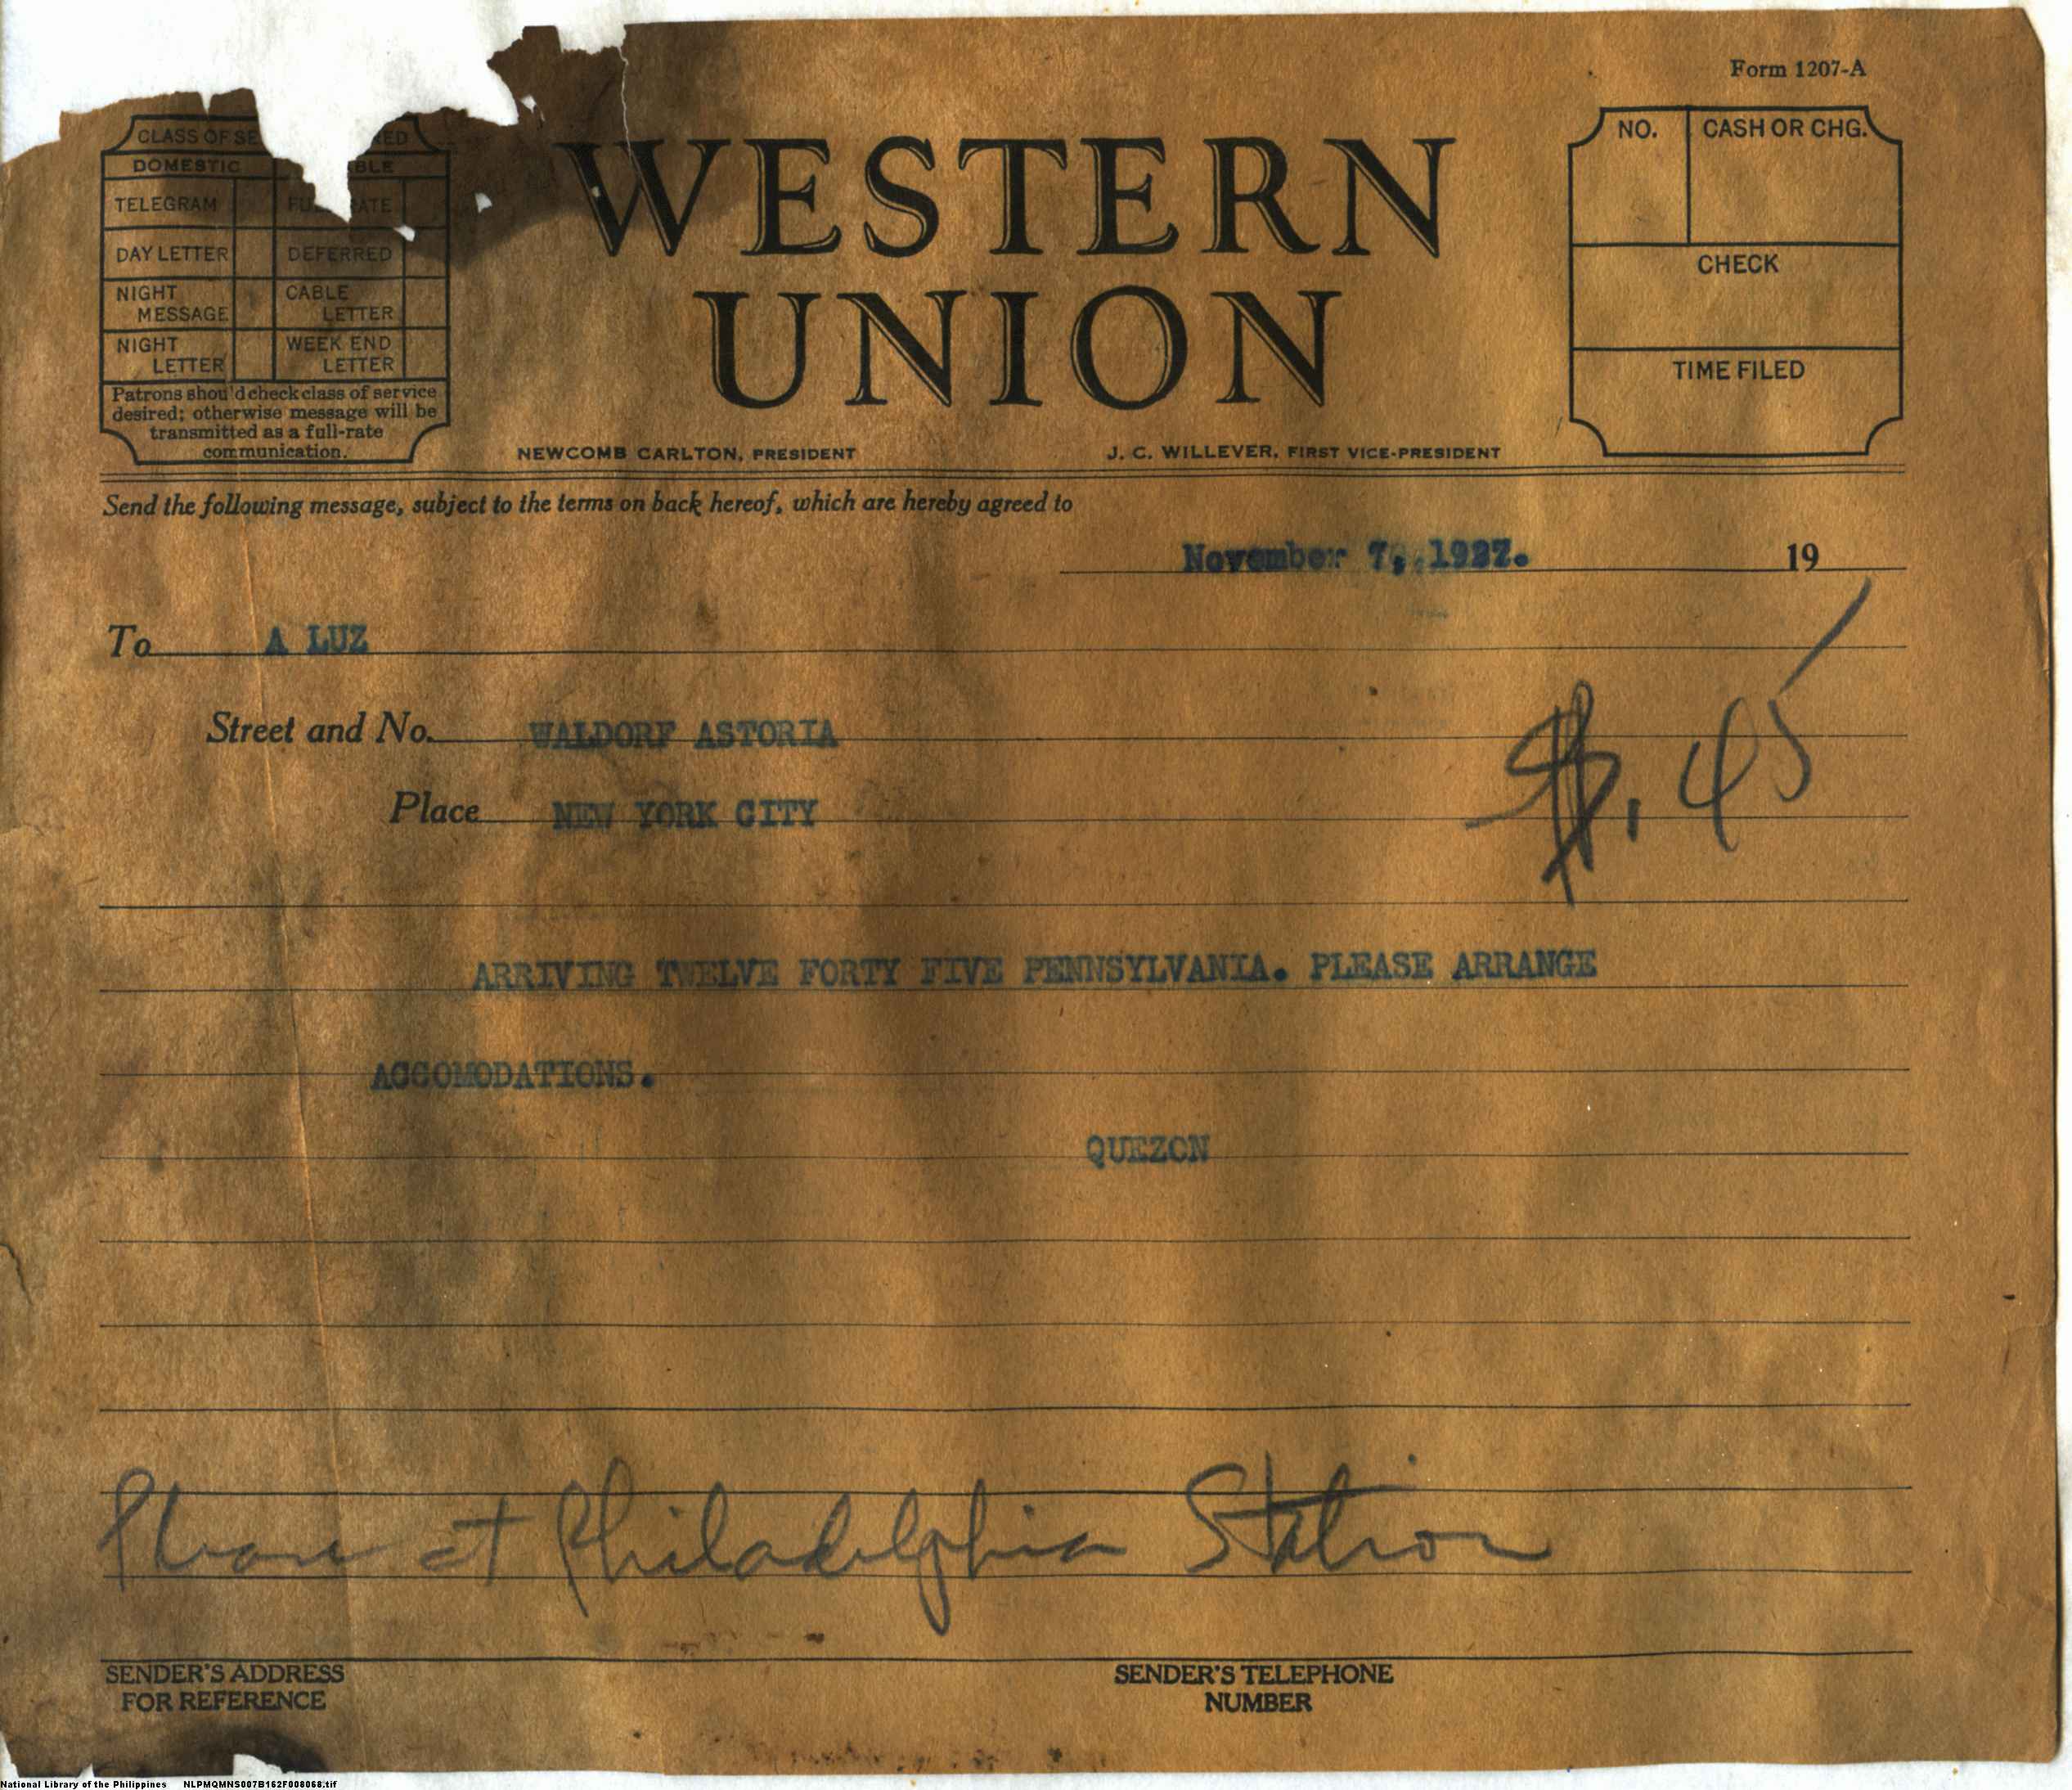 Form 1207-A
CLASS OF SE RED
DOMESTIC BLE
TELEGRAM FUL RATE
DAY LETTER DEFERRED
NIGHT MESSAGE CABLE LETTER
NIGHT LETTER WEEK END LETTER
Patrons shou'd check class of service
desired; otherwise message will be
transmitted as a full-rate
communication.
WESTERN
UNION
NEWCOMB CARLTON, PRESIDENT J. C. WILLEVER, FIRST VICE-PRESIDENT
NO. CASH OR CHG.
CHECK
TIME FILED
Send the following message, subject to the terms on back hereof, which are hereby agreed to
November 7, 1927. 19
To A LUZ
Street and No. WALDORF ASTORIA
Place NEW YORK CITY
$.45
ARRIVING TWELVE FORTY FIVE PENNSYLVANIA. PLEASE ARRANGE
ACCOMODATIONS.
QUEZON
Phone at Philadelphia Station
SENDER'S ADDRESS
FOR REFERENCE
SENDER'S TELEPHONE
NUMBER
National Library of the Philippines NLPMQMNS007B162F008068.tif